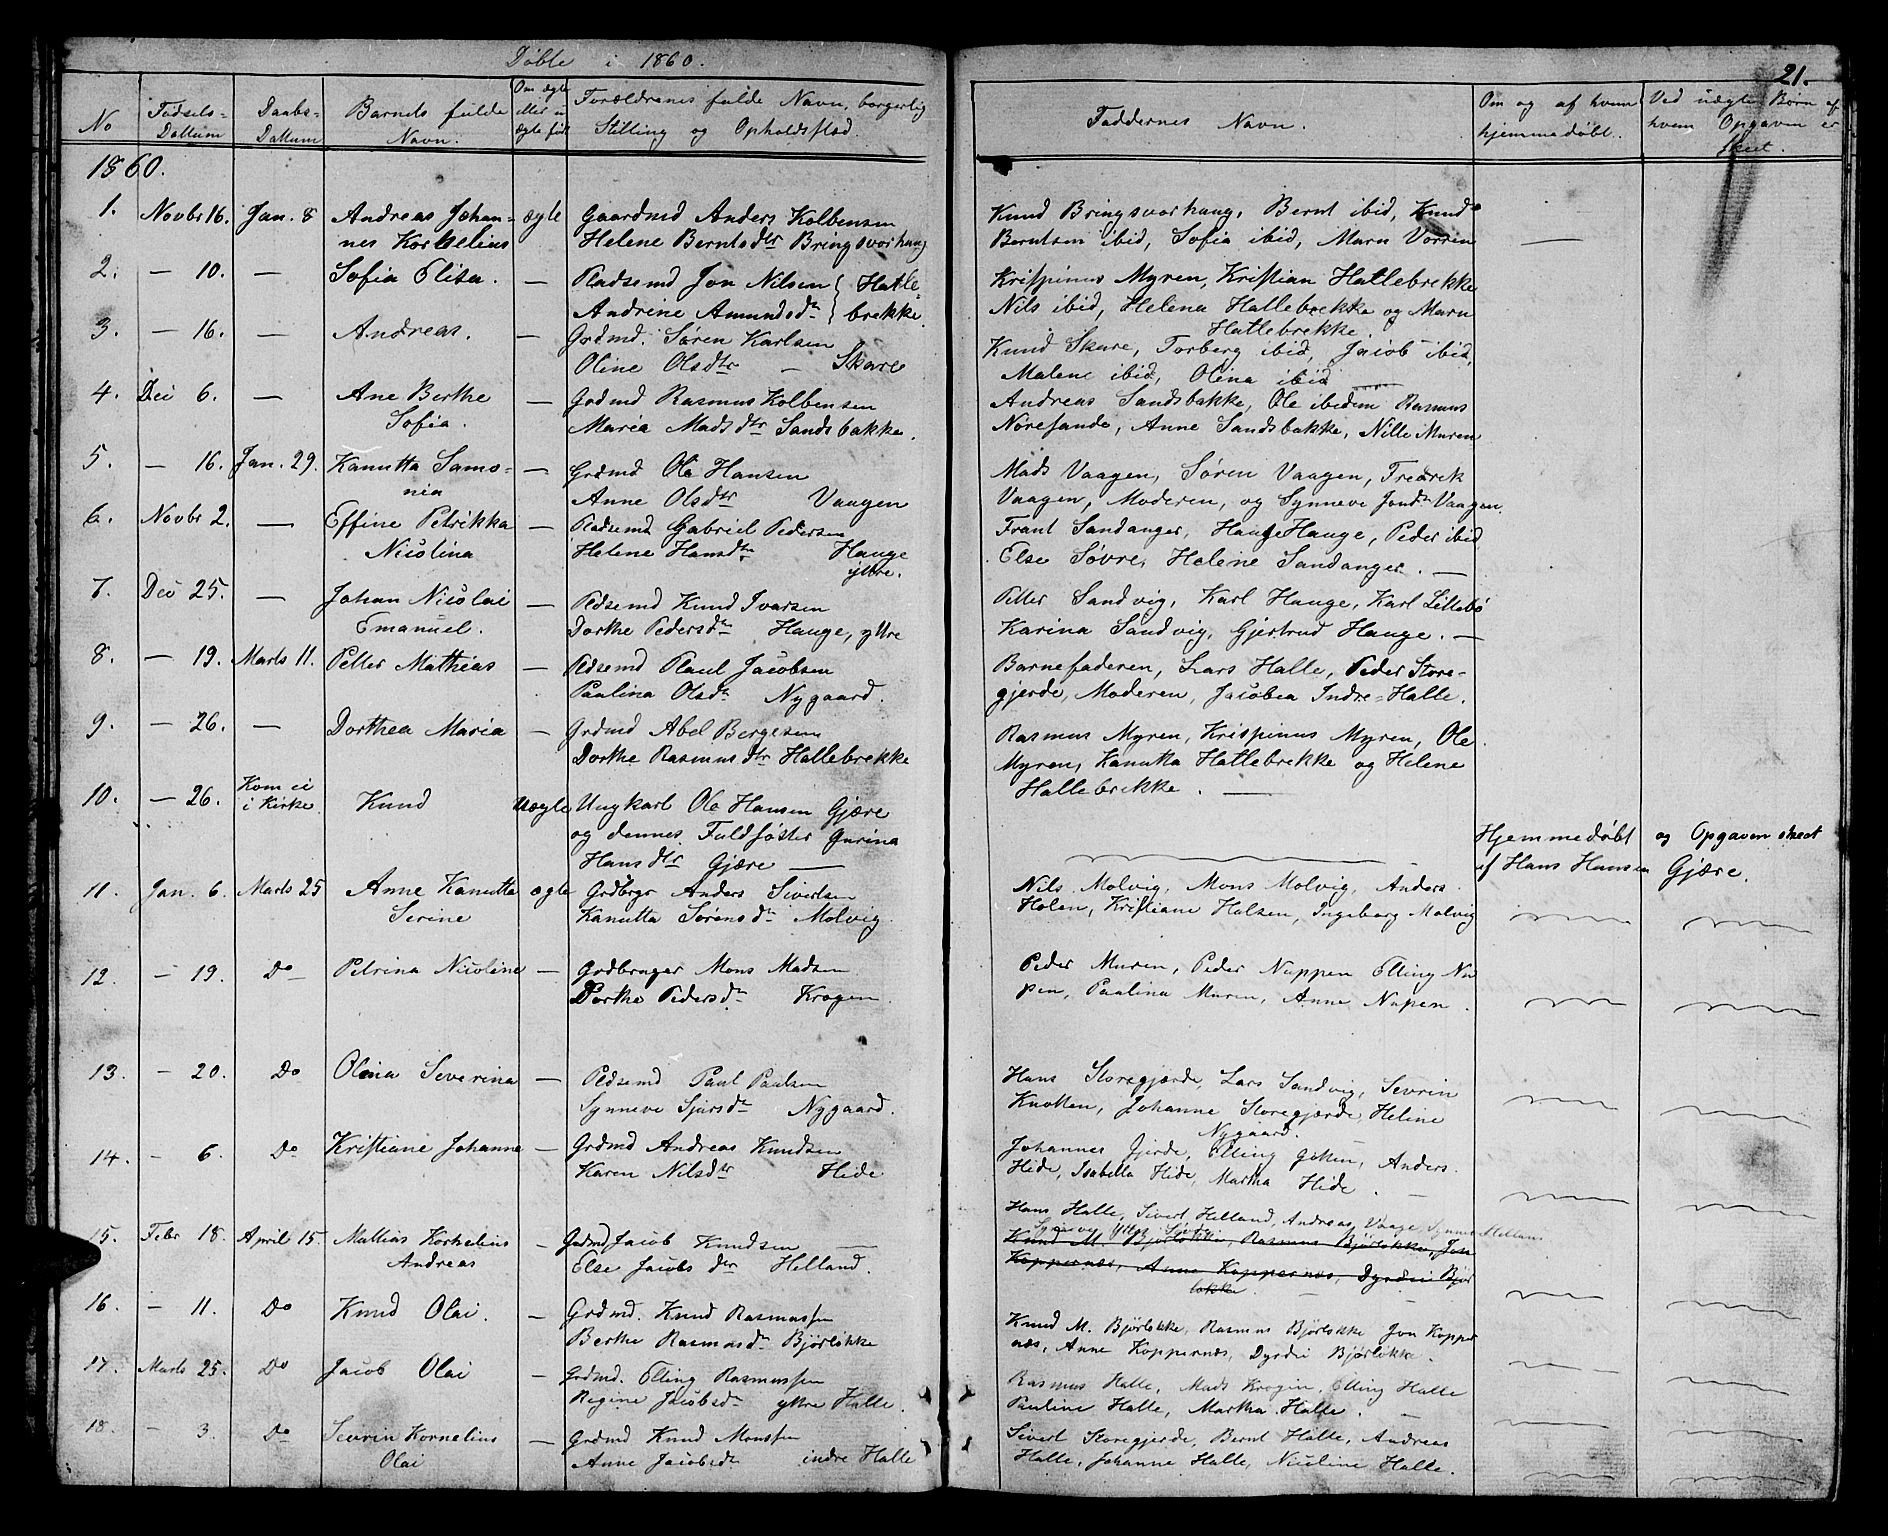 Døbte i 1860.
21.
No
Fødsels-
Dattum
Daabs-
Dattum
Barnets fulde
Navn.
Om ægte
eller u-
ægte født
Forældrenes fulde Navn, borgerlig
Stilling og Opholdssted.
Faddernes Navn.
Om og af hvem
hjemmedøbt.
Ved uægte Børn af
hvem Opgaven er
skeet.
1860.
1. Novbr 16. Jan. 8 Andreas Johan- ægte Gaardmd Anders Kolbensen
nes Kornelius Helene Berntsdtr Bringsvorhaug
Knud Bringsvorhaug, Bernt ibid, Knud
Berntsen ibid, Sofia ibid, Marn Vorren —
2. — 10. — Sofia Elisa. — Pladsemd Jon Nilsen Hatle-
Andrine Amundsdtr brekke.
Krispinus Myren, Kristian Hatlebrekke
Nils ibid, Helena Hatlebrekke og Marn
Hatlebrekke.
3. — 16. — Andreas. — Grdmd. Søren Karlsen
Oline Olsdtr — Skare
Knud Skare, Torberg ibid, Jacob ibid,
Malene ibid, Olina ibid —
4. Dec 6. — Ane Berthe — Grdmd Rasmus Kolbensen
Sofia. Maria Madsdtr Sandsbakke.
Andreas Sandsbakke, Ole ibidem Rasmus
Nøresande, Anne Sandsbakke, Nille Muren
5. — 16. Jan. 29. Kanutta Samo- — Grdmd Ole Hansen
nia Anne Olsdtr Vaagen
Mads Vaagen, Søren Vaagen, Fredrek
Vaagen, Moderen, og Synneve Jondtr Vaagen.
6. Novbr 2. — Effine Petrikka — Pladsemd Gabriel Pedersen
Nicolina Helene Hansdtr Hauge
ytre.
Frant Sandanger, Hauge Hauge, Peder ibid
Else Søvre, Helene Sandanger. —
7. Dec 25. — Johan Nicolai — Pldsemd Knud Ivarsen
Emanuel. Dorthe Pedersdtr Hauge, ytre
Petter Sandvig, Karl Hauge, Karl Lillebø
Karina Sandvig, Gjertrud Hauge. —
8. — 19. Marts 11. Petter Mathias — Pldsemd Paul Jacobsen
Paulina Olsdtr Nygaard.
Barnefaderen, Lars Halle, Peder Store-
gjerde, Moderen, Jacobea Indre-Halle.
9. — 26. — Dorthea Maria — Grdmd Abel Bergesen
Dorthe Rasmusdtr Hatlebrekke
Rasmus Myren, Krispinus Myren, Ole
Myren, Kanutta Hatlebrekke og Helene
Hatlebrekke. —
10. — 26. Kom ei
i Kirke Knud Uægte Ungkarl Ole Hansen Gjære
og dennes Fuldsøster Gurina
Hansdtr Gjære —
Hjemmedøbt og Opgaven skeet
af Hans Hansen Gjære.
11. Jan. 6. Marts 25 Anne Kanutta ægte Grdbrgr Anders Sivertsen
Serine Kanutta Sørensdtr Molvig
Nils Molvig, Mons Molvig, Anders
Holen, Kristiane Holsen, Ingeborg Molvig
12. — 19. Do Petrina Nicoline — Grdbruger Mons Madsen
Dorthe Pedersdtr Krogen.
Peder Muren, Peder Nuppen Elling Nu
pen, Paulina Muren, Anne Nupen.
13. — 20. Do Olina Severina — Pldsemd Paul Paulsen
Synneve Sjursdtr Nygaard.
Hans Storegjærde, Lars Sandvig, Sevrin
Knotten, Johanne Storegjærde, Heline
Nygaard.
14. — 6. Do Kristiane Johanne — Grdmd Andreas Knudsen
Karen Nilsdtr Hide
Johannes Gjerde, Elling Anders
Hide, Isabella Hide, Martha Hide.
15. Febr 18. April 15. Mathias Kornelius — Grdmd Jacob Knudsen
Andreas Else Jacobsdtr Helland.
Hans Halle, Sivert Helland, Andreas Vaage,
Knud M. Bjørløkke, Rasmus Bjørløkke, Jon
Koppernæs, Anne Koppernæs, Dyrdei Bjør
løkke.
16. — 11. Do Knud Olai. — Grdmd. Knud Rasmussen
Berthe Rasmusdtr Bjørløkke
Knud M. Bjørløkke, Rasmus Bjørløkke Jon Kopper
næs, Anne Koppernæs, Dyrdei Bjørløkke.
17. Marts 25. Do Jacob Olai — Grdmd. Elling Rasmussen
Regine Jacobsdtr ytre Halle.
Rasmus Halle, Mads Krogen, Elling Halle
Pauline Halle, Martha Halle.
18. — 3. Do Sevrin Kornelius — Grdmd Knud Monssen
Olai Anne Jacobsdtr indre Halle
Sivert Storegjerde, Bernt Halle, Andreas
Halle, Johanne Halle, Nicoline Halle.